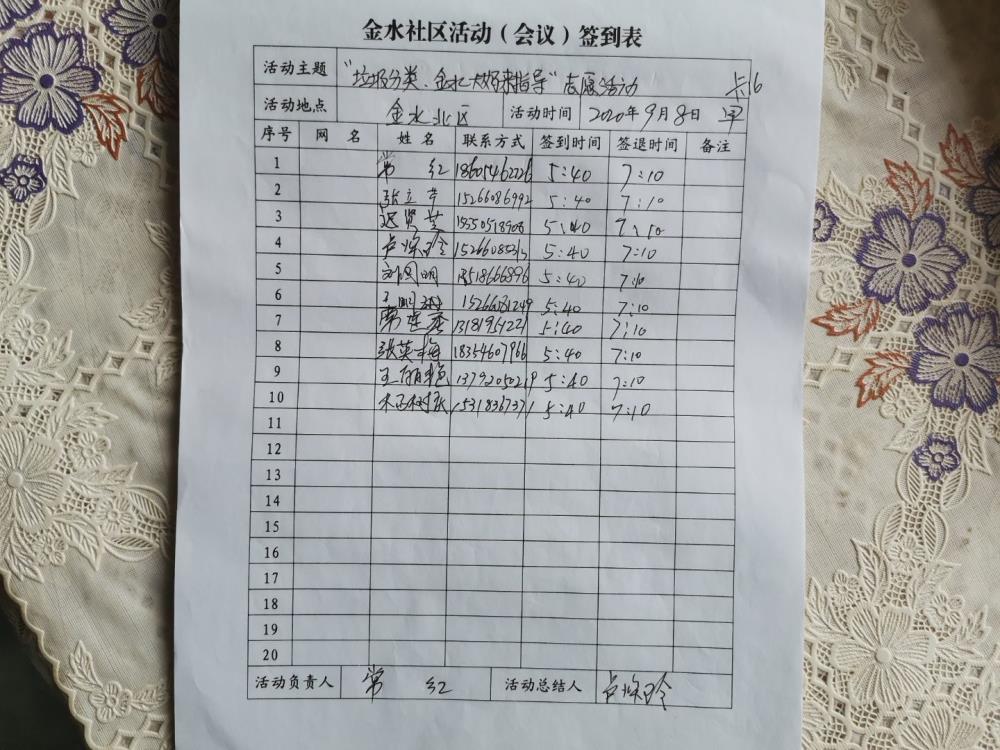 金水社区活动（会议）签到表
活动主题 "垃圾分类、金水大嫂来指导"志愿活动
活动地点 金水北区 活动时间 2020年9月8日 早
序号 网 名 姓 名 联系方式 签到时间 签退时间 备注
1 常 红 18605462226 5:40 7:10
2 张立 15266086992 5:40 7:10
3 迟贤芝 5:40 7:10
4 5:40 7:10
5 刘国明 13518666896 5:40 7:10
6 15266081249 5:40 7:10
7 13181951221 5:40 7:10
8 张英梅 18354607966 5:40 7:10
9 王丽艳 13792050219 5:40 7:10
10 15318367371 5:40 7:10
11
12
13
14
15
16
17
18
19
20
活动负责人 常 红 活动总结人